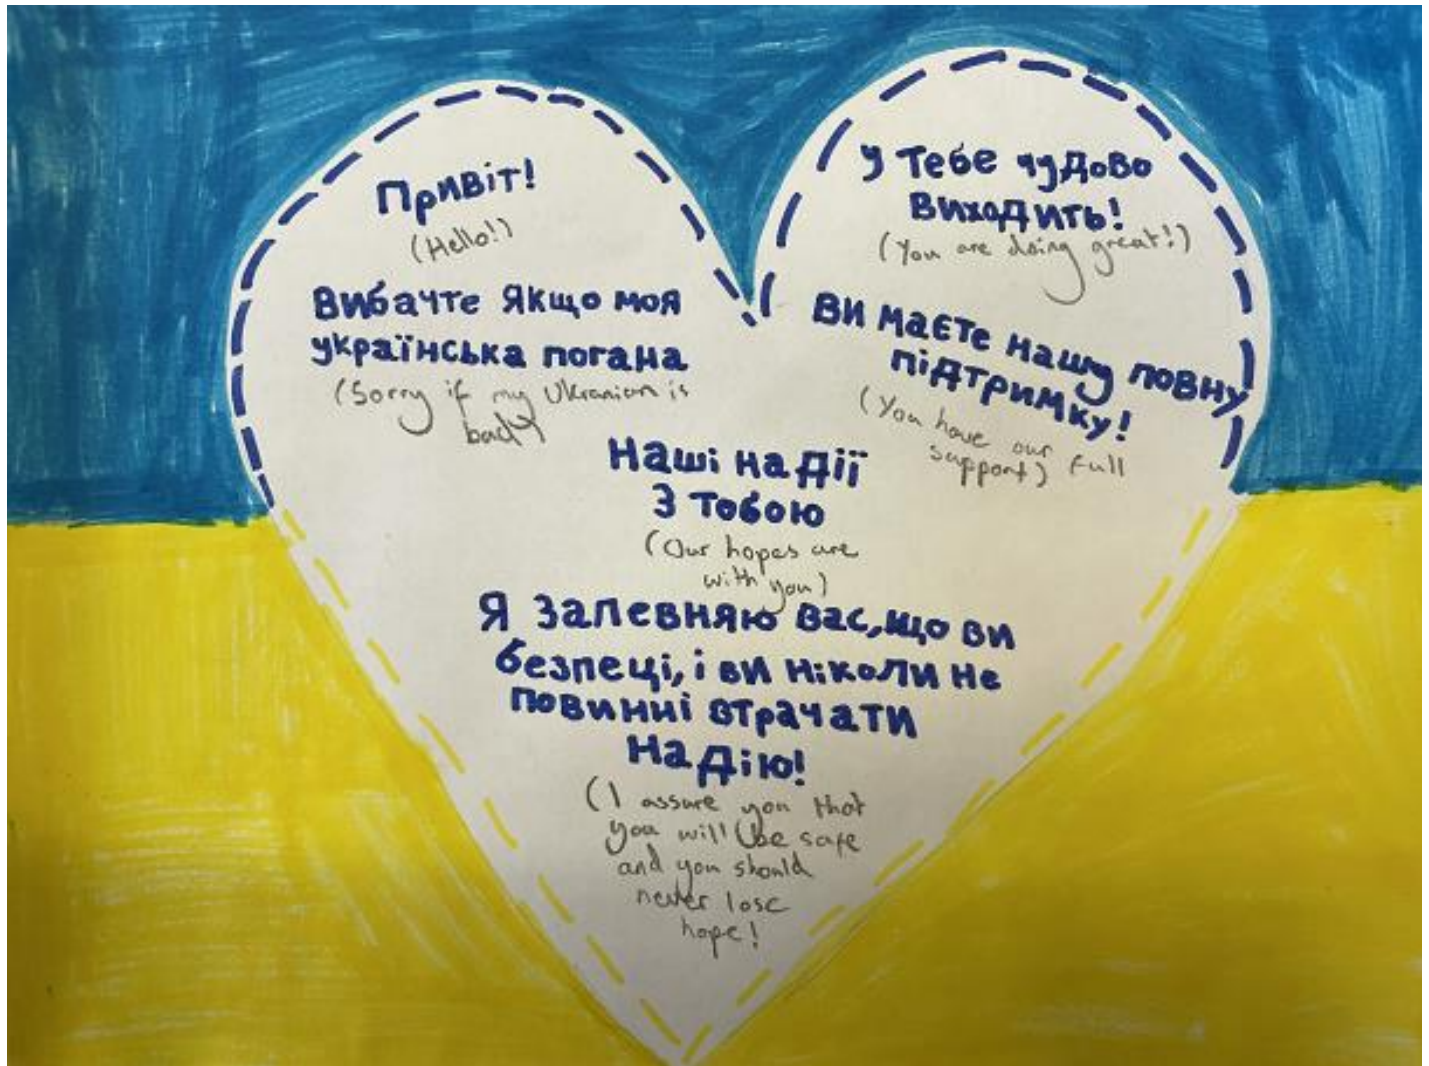 Привіт!
(Hello!)
Вибачте якщо моя
українська погана
(Sorry if my Ukranian is
bad)
У тебе чудово
виходить!
(You are doing great!)
Ви маєте нашу повну
підтримку!
(You have our full
support)
Наші надії
з тобою
(Our hopes are
with you)
Я запевняю вас, що ви
безпеці, і ви ніколи не
повинні втрачати
надію!
(I assure you that
you will be safe
and you should
never lose
hope!